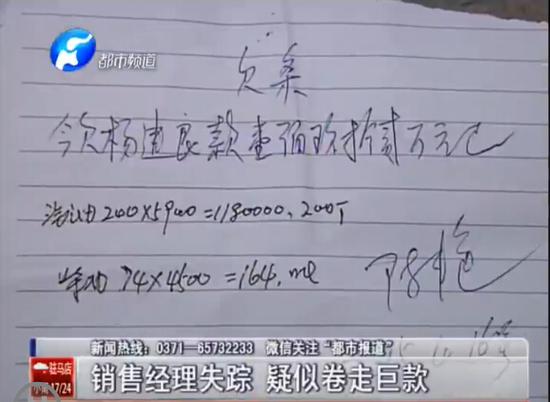 都市频道
欠条
今欠杨建良款壹佰玖拾贰万元已
汽油200×5900=1180000. 200T
柴油 74×4500=164.
新闻热线：0371—65732233 微信关注“都市报道”
驻马店
小雨 17/24
销售经理失踪 疑似卷走巨款